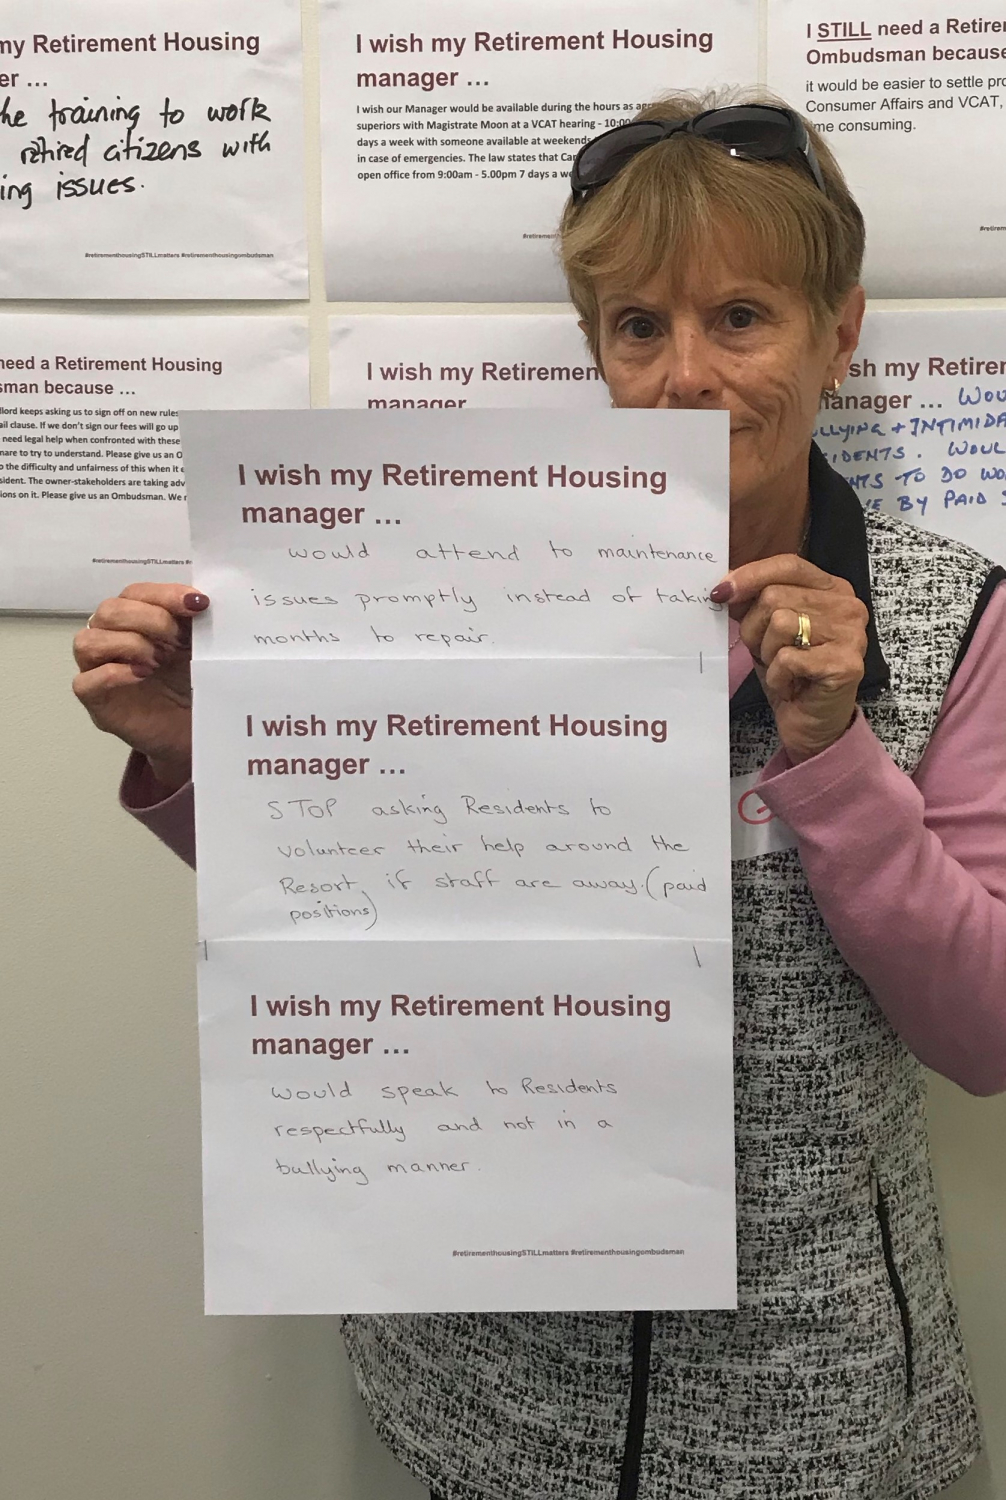 my Retirement Housing
er ...
he training to work
retired citizens with
ing issues.
#retirementhousingSTILLmatters #retirementhousingombudsman
I wish my Retirement Housing
manager ...
I wish our Manager would be available during the hours as
superiors with Magistrate Moon at a VCAT hearing - 10:00
days a week with someone available at weekends
in case of emergencies. The law states that
open office from 9:00am - 5.00pm 7 days a
I STILL need a
Ombudsman because
it would be easier to settle
Consumer Affairs and VCAT,
me consuming.
need a Retirement Housing
sman because ...
dlord keeps asking us to sign off on new rules
ail clause. If we don't sign our fees will go up
need legal help when confronted with these
mare to try to understand. Please give us an O
o the difficulty and unfairness of this when it
sident. The owner-stakeholders are taking adv
ions on it. Please give us an Ombudsman. We
I wish my Retiremen
manager
sh my Retirer
manager ... WOU
LLYING + INTIMIDA
SIDENTS. WOUL
NTS TO DO WO
E BY PAID S
I wish my Retirement Housing
manager ...
would attend to maintenance
issues promptly instead of taking
months to repair.
I wish my Retirement Housing
manager ...
STOP asking Residents to
volunteer their help around the
Resort, if staff are away. (paid
positions)
I wish my Retirement Housing
manager ...
would speak to Residents
respectfully and not in a
bullying manner.
#retirementhousingSTILLmatters #retirementhousingombudsman